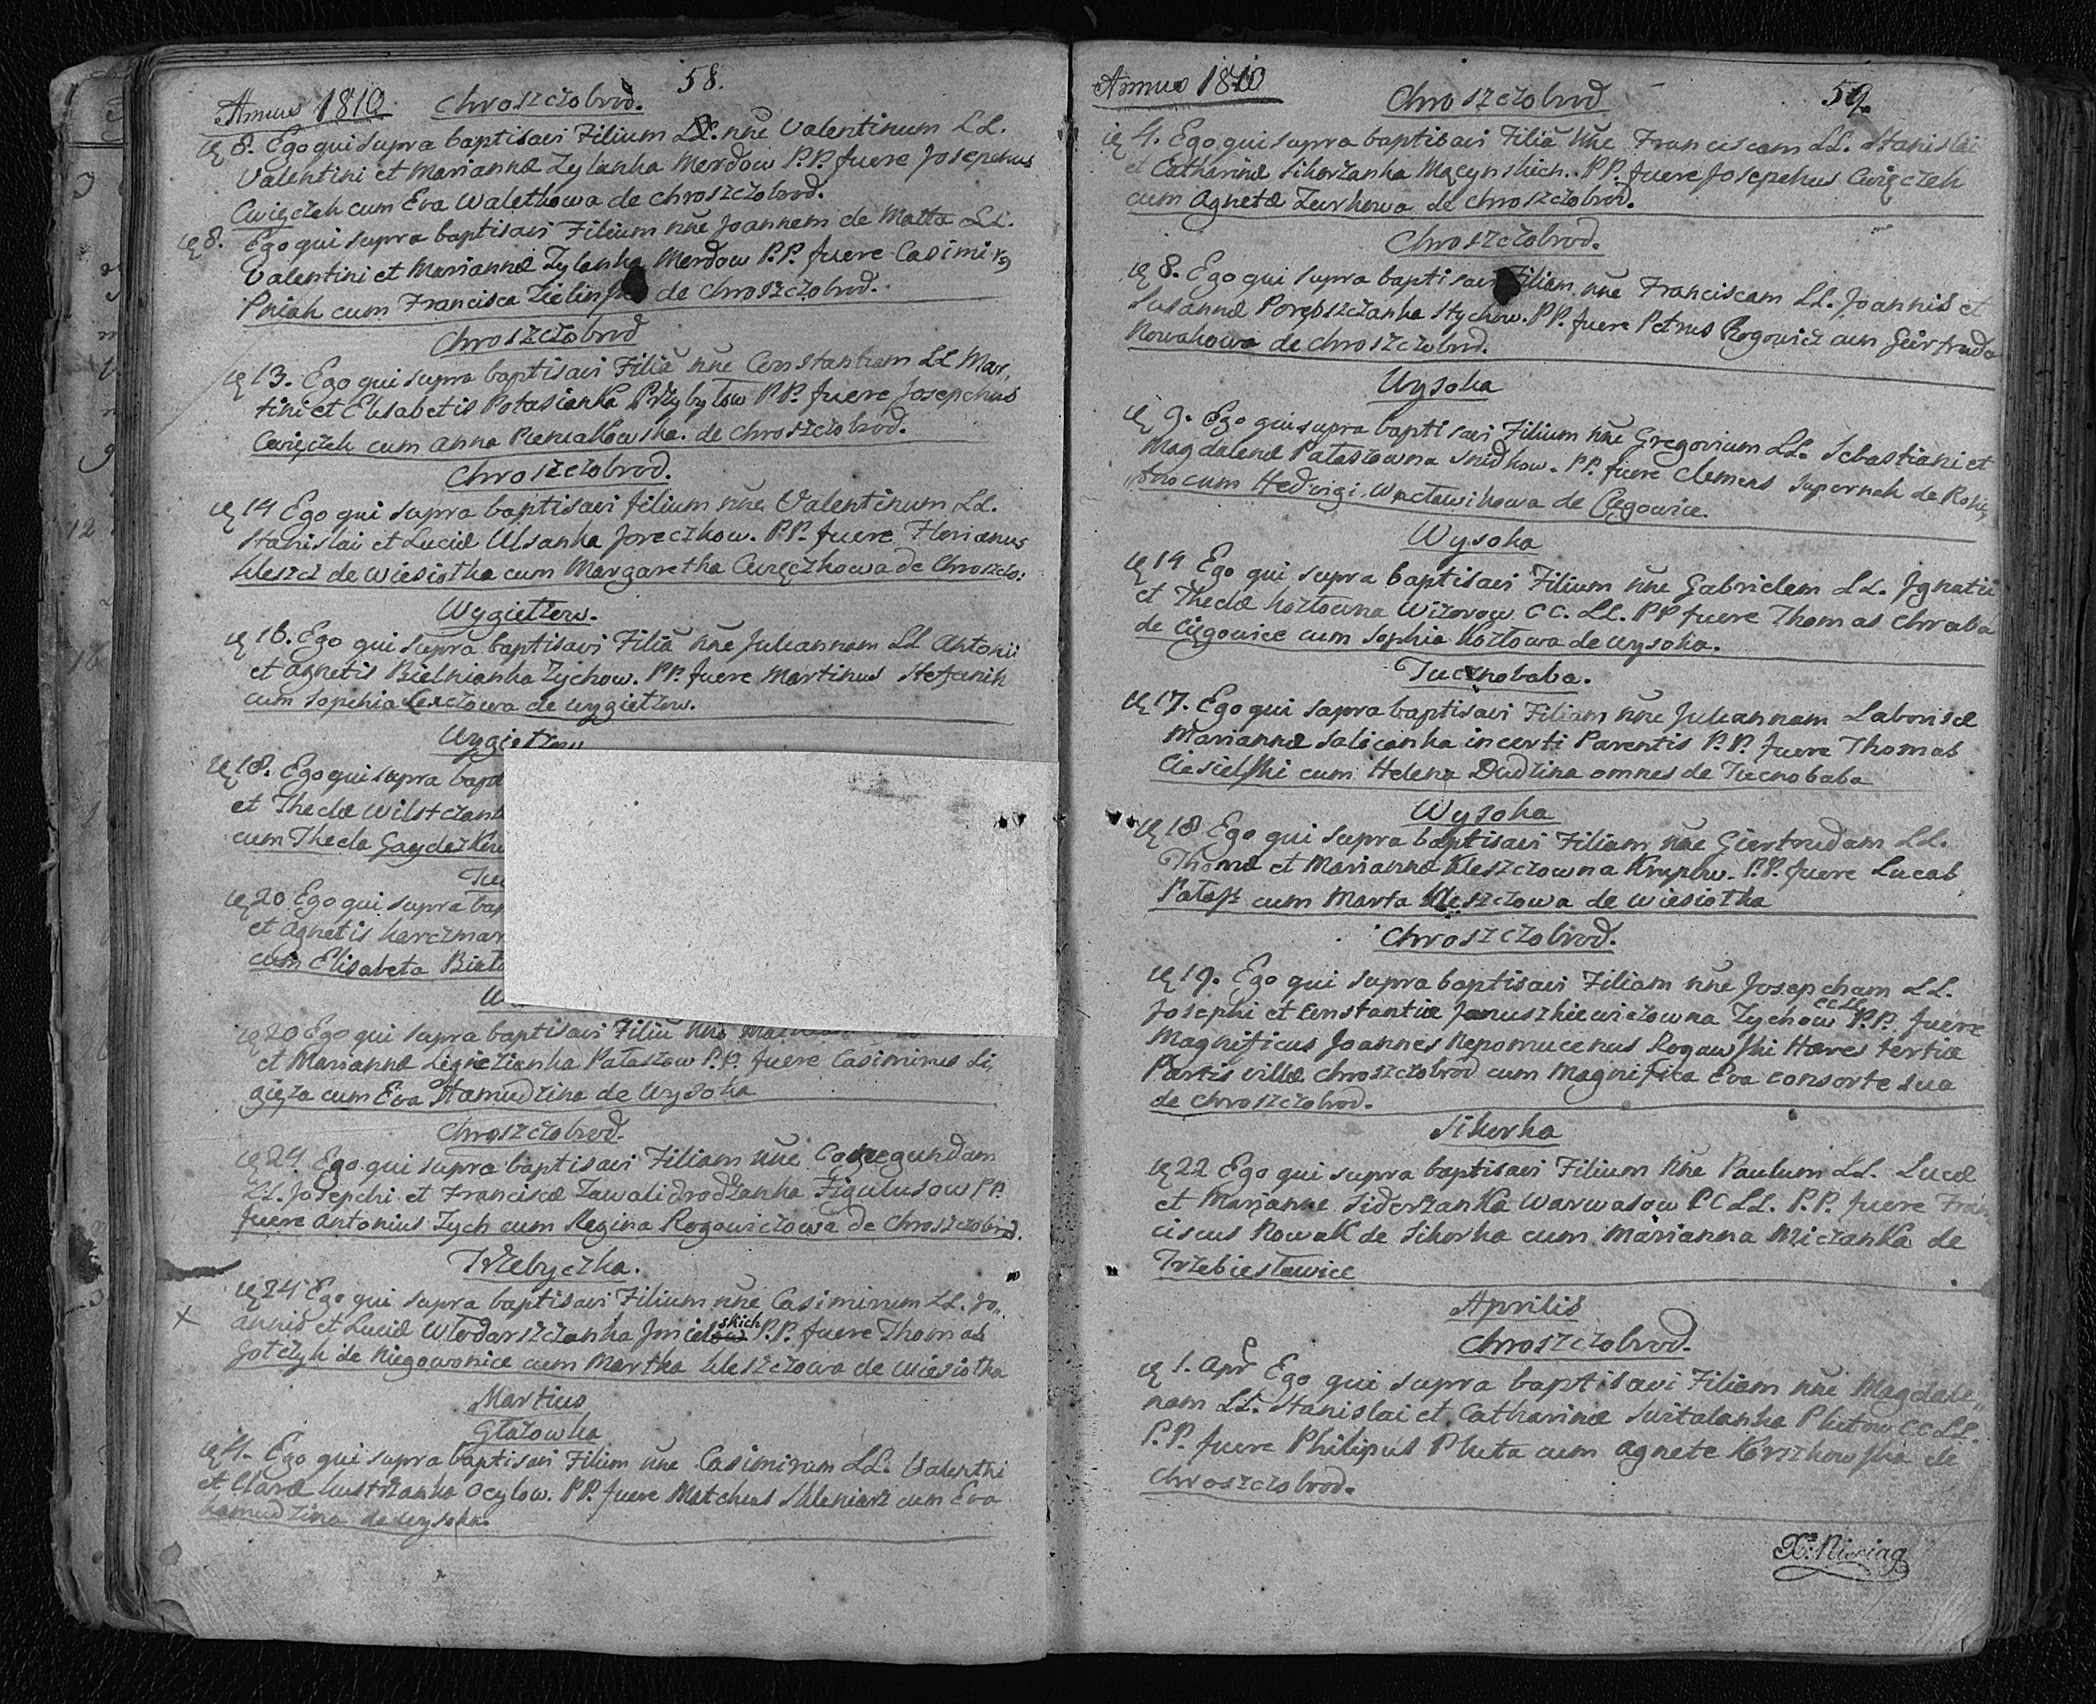 58.
Annus 1810. Chroszczobrod.
8. Ego qui supra baptisavi Filium nne Valentinum LL.
Valentini et Mariannæ Zylanka Merdow P.P. fuere Josephus
Cwięczek cum Eva Walethowa de Chroszczobrod.
8. Ego qui supra baptisavi Filium nne Joannem de Matta LL.
Valentini et Mariannæ Zylanka Merdow P.P. fuere Casimirg
Pniak cum Francisca de Chroszczobrod.
Chroszczobrod
13. Ego qui supra baptisavi Filiā nne Constantiam LL Mar,
tini et Elisabetis Potasianka Przybyłow P.P. fuere Josephus
Cwięczek cum Anna de Chroszczobrod.
Chroszczobrod.
14 Ego qui supra baptisavi filium nne Valentinum LL.
Stanislai et Luciæ Ulsanka Joreczkow. P.P. fuere Florianus
Kleszcz de Wiesiołka cum Margaretha Cwięczkowa de Chroszczo:
Wygiełzow.
16. Ego qui supra baptisavi Filiā nne Juliannam LL Antonii
et Agnetis Bielnianka Zychow. P.P. fuere Martinus Stefanik
cum Sophia de Wygiełzow.
Wygiełzow
18. Ego qui supra bapt
et Theclæ
cum Thecla
20 Ego qui supra bap
et Agnetis Karczmar
cum Elisabeta
20 Ego qui supra baptisavi Filiū nne
et Mariannæ Ligięzianka Pataszow P.P. fuere Casimirus Li,
gięza cum Eva Hamudzina de Wysoka
Chroszczobrod.
24 Ego qui supra baptisavi Filiam nne Conegundam
LL. Josephi et Franciscæ Zawalidrodzanka Figulusow P.P.
fuere Antonius Zych cum Regina Rogowiczowa de Chroszczobrod.
Trzebyczka.
X
24 Ego qui supra baptisavi Filium nne Casimirum LL. Jo,,
annis et Luciæ Włodarszczanka skich P.P. fuere Thomas
Gołczyk de Niegowonice cum Martha Kleszczowa de Wiesiołka
Martius
Głazowka
4. Ego qui supra baptisavi Filium nne Casimirum LL. Valentini
et Claræ Kustrzanka Ocylow. P.P. fuere Matheus cum Eva
Hamudzina de Wysoka.
Annus 1810 Chroszczobrod 59.
4. Ego qui supra baptisavi Filiā nne Franciscam LL. Stanislai
et Catharinæ Sikorzanka Mączynskich. P.P. fuere Josephus Cwięczek
cum Agneta Zurkowa de Chroszczobrod.
Chroszczobrod.
8. Ego qui supra baptisavi Filiam nne Franciscam LL. Joannis et
Susannæ Porębszczanka Stychow. P.P. fuere Petrus Rogowicz cum Giertruda
Nowakowa de Chroszczobrod.
Wysoka
9. Ego qui supra baptisavi Filium nne Gregorium LL. Sebastiani et
Magdalenæ Pataszowna P.P. fuere Clemens Supernak de
cum Hedvigi Wacławikowa de Cięgowice.
Wysoka
14 Ego qui supra baptisavi Filium nne Gabrielem LL. Ignatii
et Theclæ Kozłowna Wizorow CC. LL. P.P fuere Thomas Chraba
de Cięgowice cum Sophia Kozłowa de Wysoka.
Tucznobaba.
17. Ego qui supra baptisavi Filiam nne Juliannam Laboriosæ
Mariannæ Salicanka incerti Parentis P.P. fuere Thomas
Ciesielski cum Helena Dudzina omnes de Tucnobaba
Wysoka
18 Ego qui supra baptisavi Filiam nne Giertrudam LL.
Thomæ et Mariannæ Kleszczowna Krupow. P.P. fuere Lucas
Patass cum Marta Kleszczowa de Wiesiołka
Chroszczobrod.
19. Ego qui supra baptisavi Filiam nne Josepham LL.
Josephi et Constantiæ Januszkiewiczowna Zychow CC LL P.P. fuere
Magnificus Joannes Nepomucenus Rogawski Hæres tertiæ
Partis villæ Chroszczobrod cum Magnifica Eva consorte sua
de Chroszczobrod.
Sikorka
22 Ego qui supra baptisavi Filium nne Paulum LL. Lucæ
et Mariannæ Siderzanka Warwasow CC LL. P.P. fuere Fran
ciscus Nowak de Sikorka cum Marianna Mziczanka de
Trzebiesławice
Aprilis
Chroszczobrod.
1. Apr Ego qui supra baptisavi Filiam nne Magdale,,
nam LL. Stanislai et Catharinæ Switalanka Plutow CC LL.
P.P. fuere Philipus Pluta cum Agnete de
Chroszczobrod.